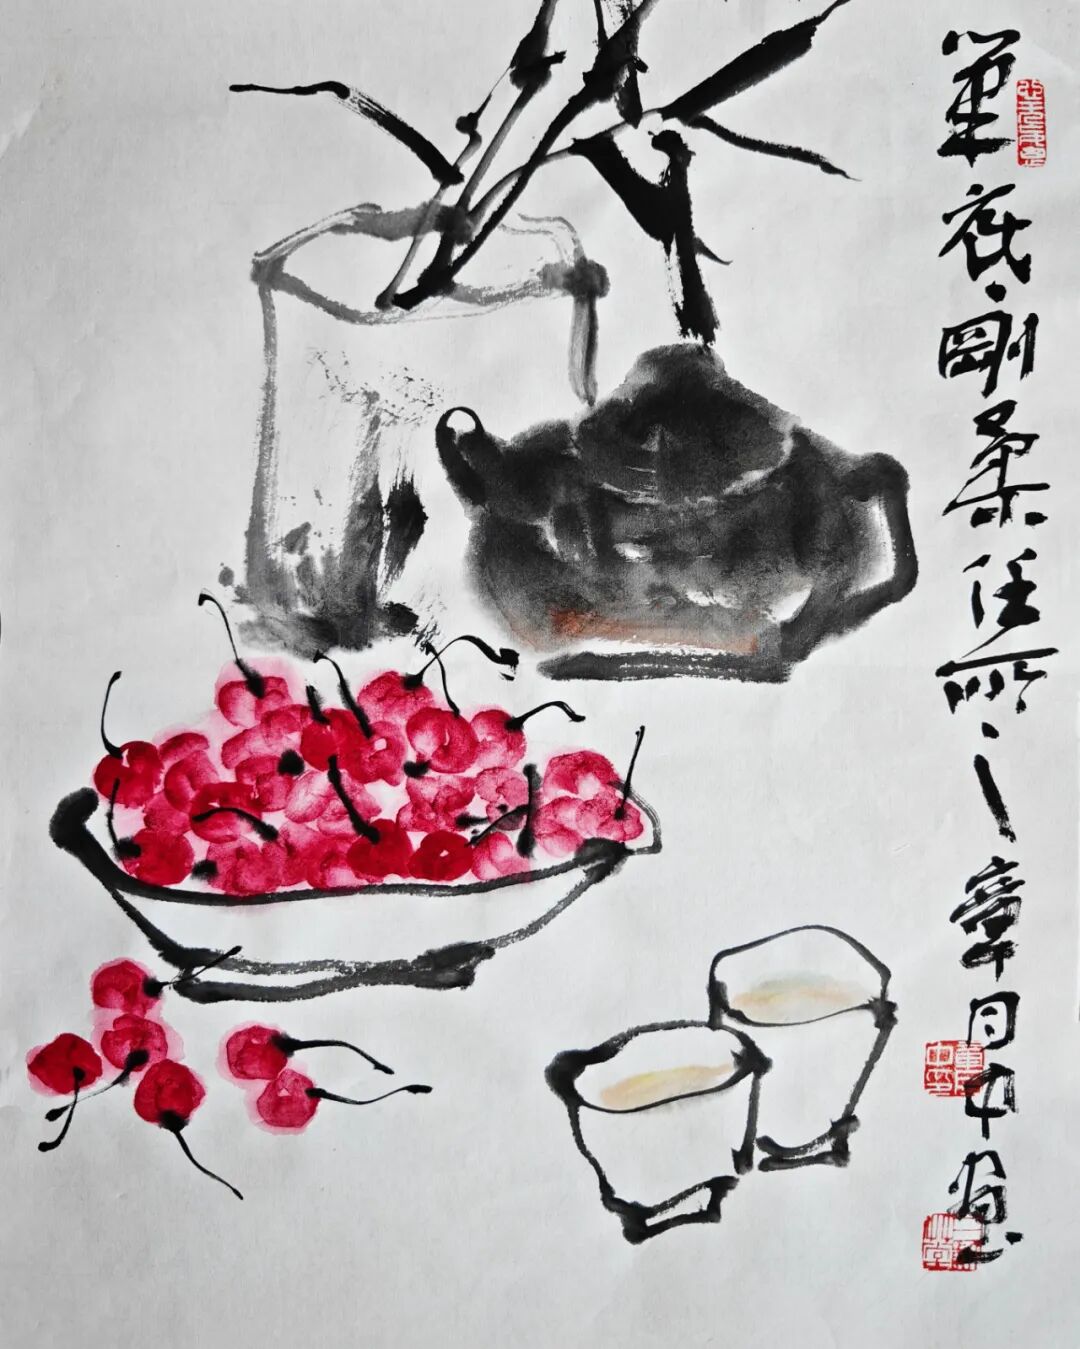 筆底剛柔任所之章日中畫